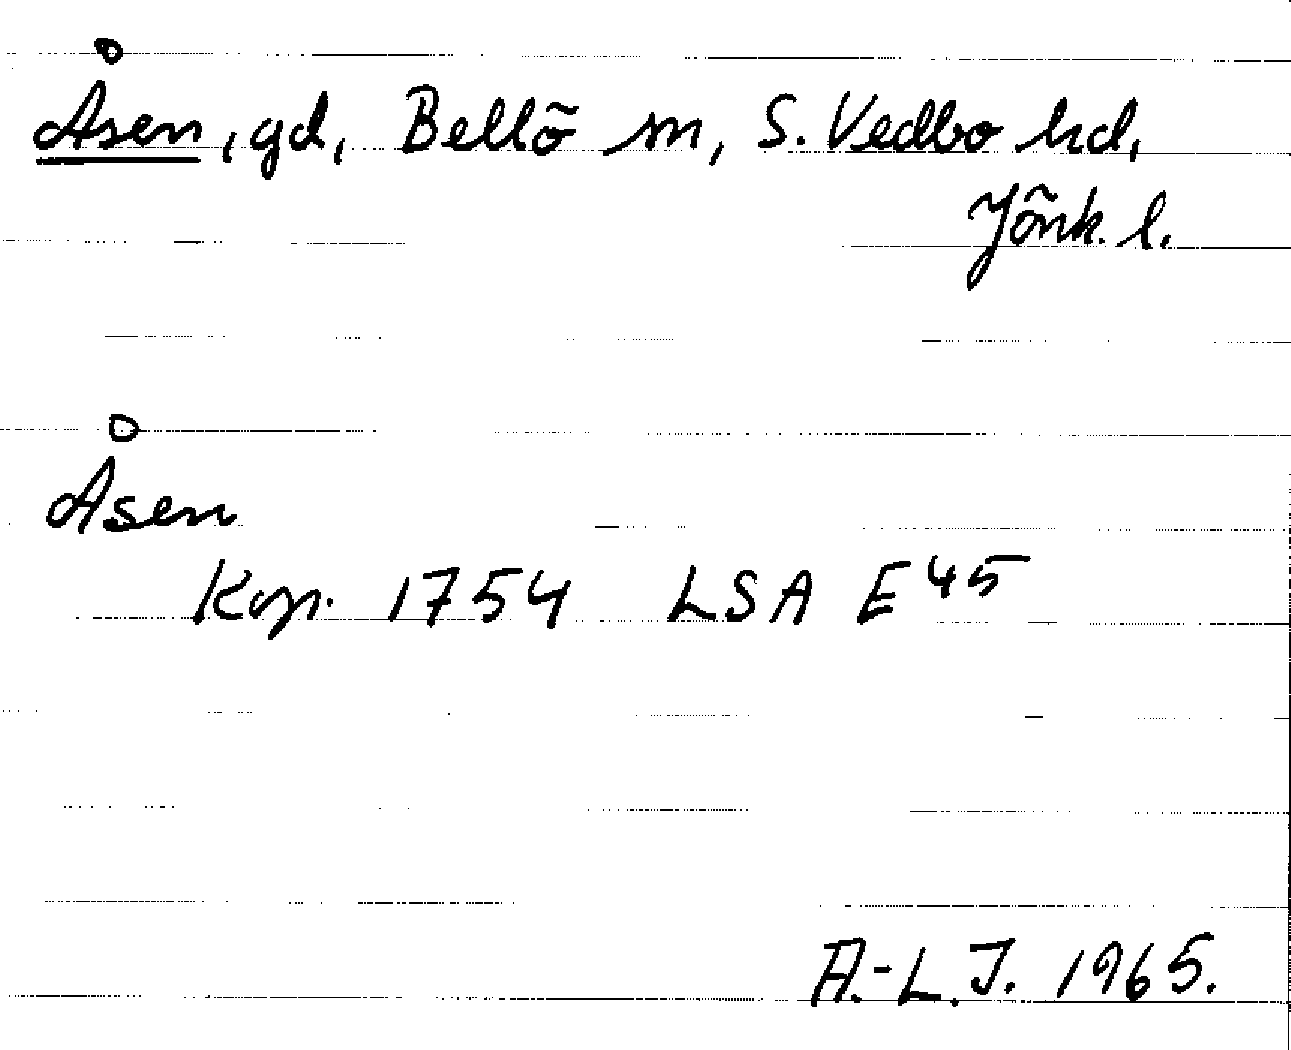 Åsen, gd, Bellö sn, S. Vedbo hd,
Jönk. l.
Åsen
Kop. 1754 LSA E45
A.-L. J. 1965.